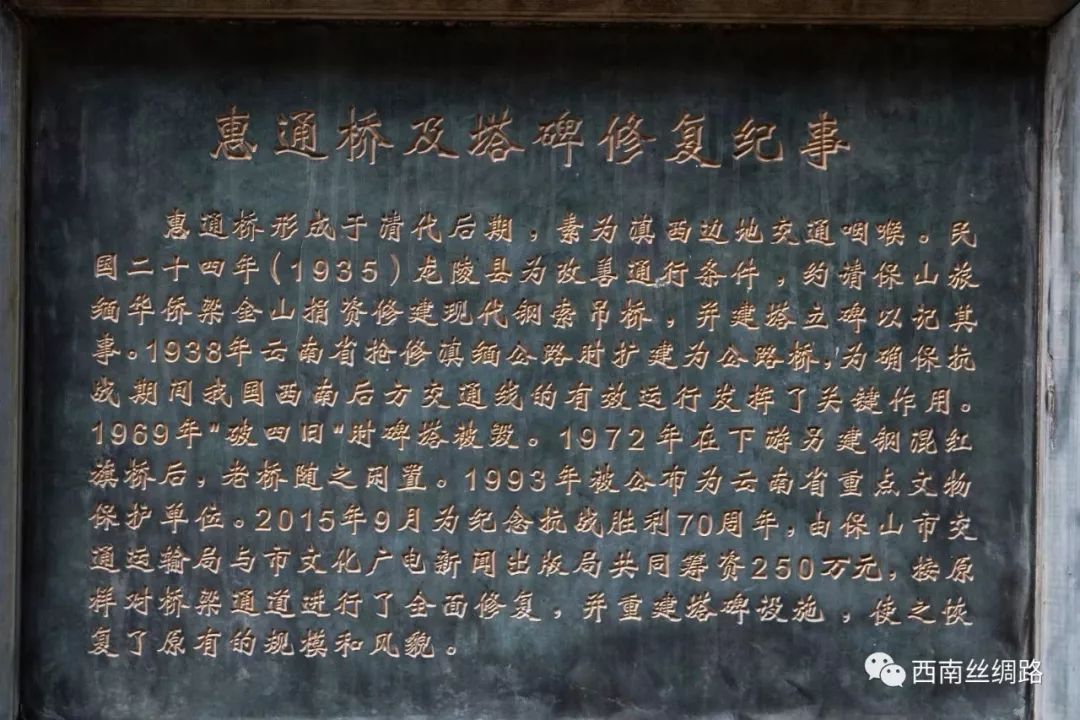 惠通桥及塔碑修复纪事
惠通桥形成于清代后期，素为滇西边地交通咽喉。民
国二十四年(1935)龙陵县为改善通行条件，约请保山旅
缅华侨梁金山捐资修建现代钢索吊桥，并建塔立碑以记其
事。1938年云南省抢修滇缅公路时扩建为公路桥，为确保抗
战期间我国西南后方交通线的有效运行发挥了关键作用。
1969年"破四旧"时碑塔被毁。1972年在下游另建钢混红
旗桥后，老桥随之闲置。1993年被公布为云南省重点文物
保护单位。2015年9月为纪念抗战胜利70周年，由保山市交
通运输局与市文化广电新闻出版局共同筹资250万元，按原
样对桥梁通道进行了全面修复，并重建塔碑设施，使之恢
复了原有的规模和风貌。
西南丝绸路